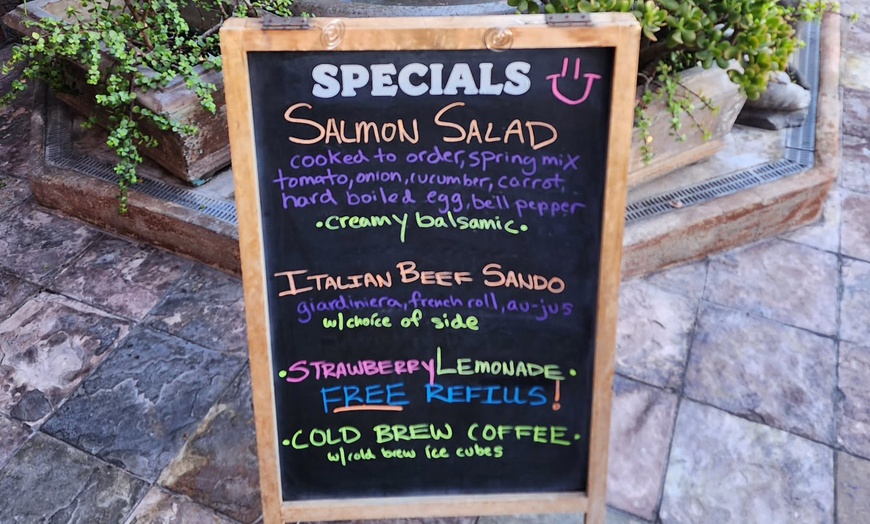 SPECIALS
SALMON SALAD
cooked to order, spring mix
tomato, onion, cucumber, carrot,
hard boiled egg, bell pepper
•creamy balsamic•
ITALIAN BEEF SANDO
giardiniera, french roll, au-jus
w/choice of side
•STRAWBERRY LEMONADE•
FREE REFILLS!
•COLD BREW COFFEE•
w/cold brew ice cubes